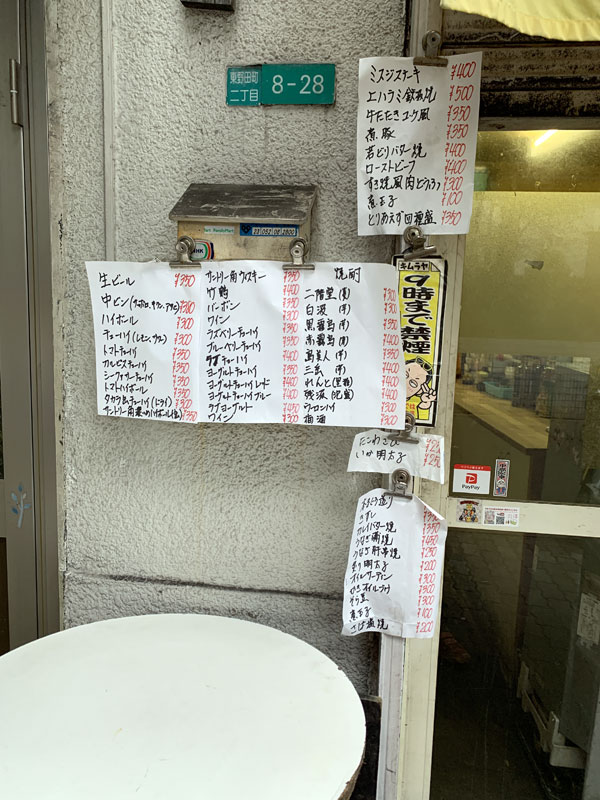 東野田町
二丁目
8-28
ミスジステーキ ¥400
上ハラミ鉄板焼 ¥500
牛たたきユッケ風 ¥350
煮豚 ¥350
若どりバター焼 ¥400
ローストビーフ ¥400
すき焼風肉どうふ ¥300
煮玉子 ¥100
とりあえず四種盛 ¥350
生ビール ¥350
ハイボール ¥300
チューハイ(レモン、プレーン) ¥300
トマトチューハイ ¥350
カルピスチューハイ ¥350
シークヮサーチューハイ ¥350
トマトハイボール ¥350
サントリー角ウィスキー ¥350
竹鶴 ¥400
バーボン ¥400
ワイン ¥300
ラズベリーチューハイ
ブルーベリーチューハイ
ヨーグルトチューハイ
ヨーグルトチューハイレッド ¥400
ヨーグルトチューハイブルー ¥400
ラブヨーグルト ¥450
ワイン ¥300
焼酎
二階堂(麦) ¥300
白波(芋) ¥300
黒霧島(芋)
赤霧島(芋) ¥400
島美人(芋) ¥400
三岳(芋) ¥400
れんと(黒糖)
残波(泡盛)
ウーロンハイ ¥300
梅酒 ¥300
キムラヤ
9時まで禁煙
たこわさび
いか明太子 ¥250
きずし
カレイバター焼
うなぎ蒲焼 ¥450
うなぎ肝串焼 ¥250
炙り明太子 ¥200
オイルサーディン ¥300
そら豆 ¥300
煮玉子 ¥100
さば塩焼 ¥200
NHK
PayPay